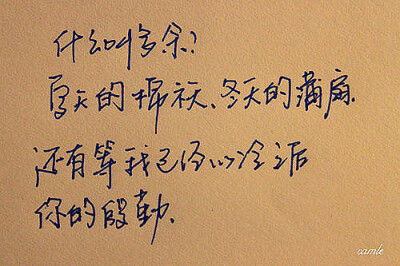 什么叫多余?
夏天的棉袄、冬天的蒲扇.
还有等我已经心冷之后
你的殷勤.
camle